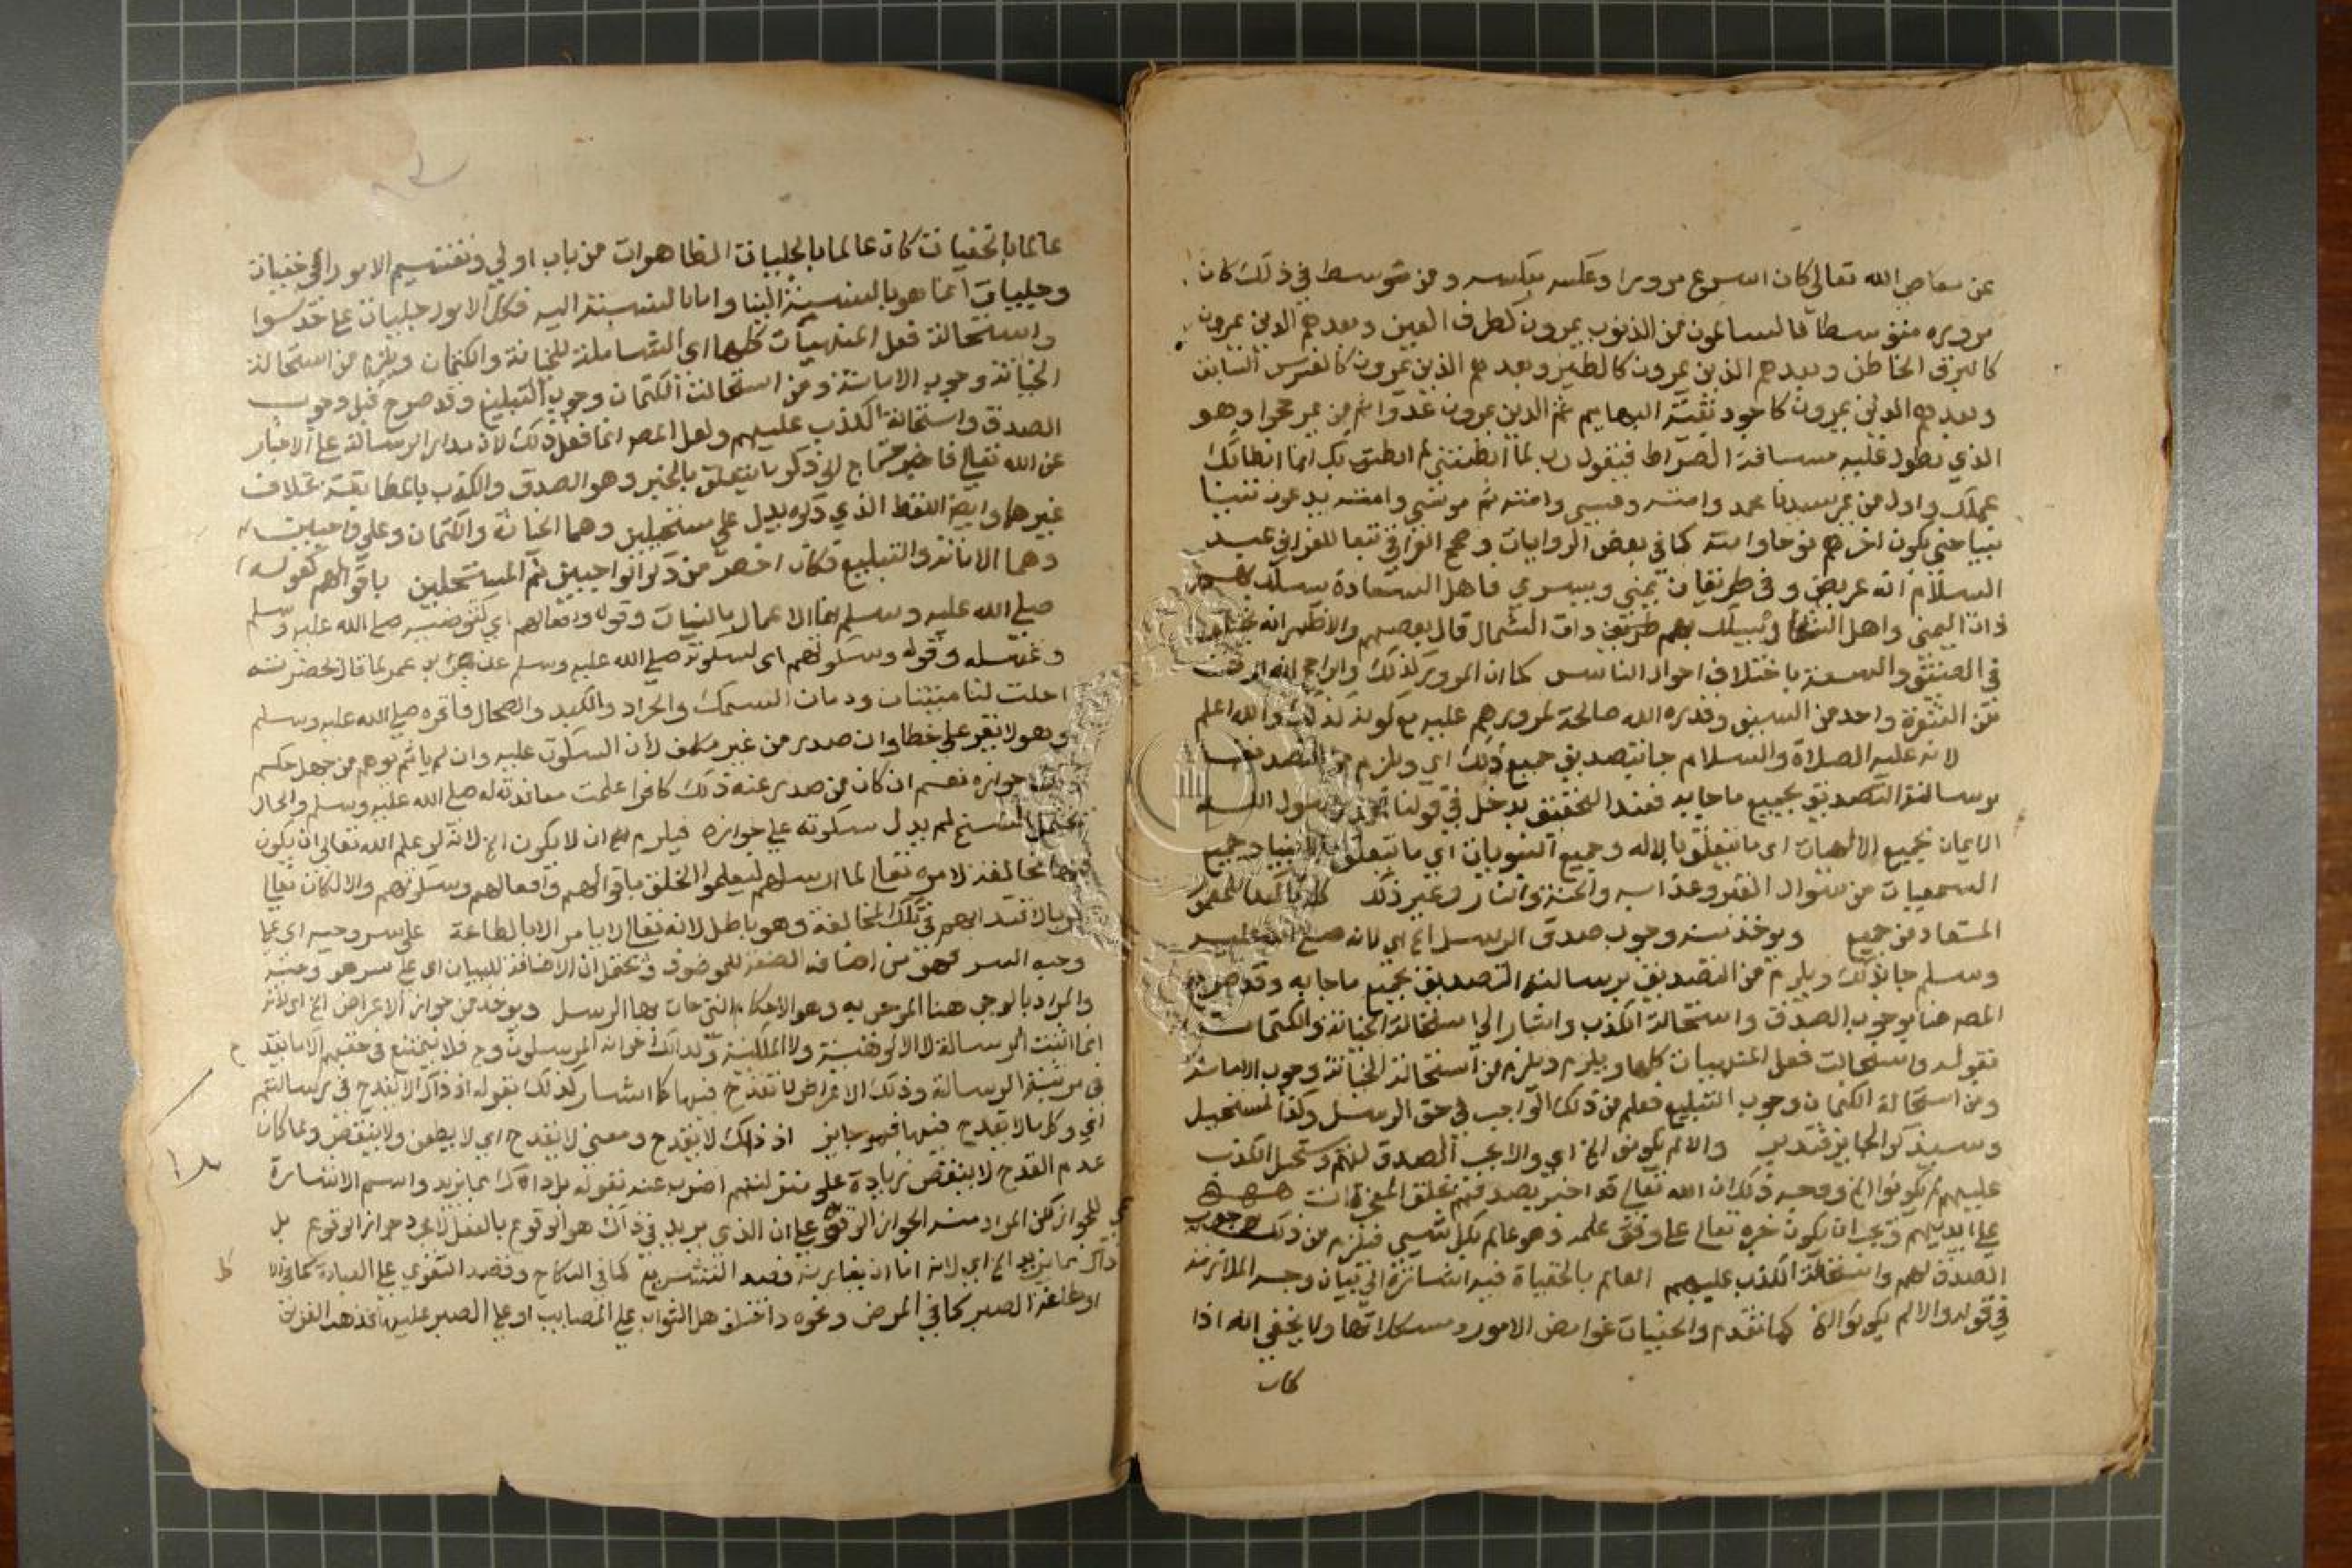 عن معاصي الله تعالى كان اسرع مرورا وعكسه بعكسه ومن توسط في ذلك كان
مروره متوسطا فالسالمون من الذنوب يمرون كطرف العين وبعدهم الذين يمرون
كالبرق الخاطف وبعدهم الذين يمرون كالطير وبعدهم الذين يمرون كالفرس السابق
وبعدهم الذين يمرون كاجود بقية البهايم ثم الذين يمرون عدوا ثم من يمر حبوا وهو
الذي تطول عليه مسافة الصراط فيقول رب لما ابطيتني لم ابطئ بك انما ابطابك
عملك واول من يمر سيدنا محمد وامته وعيسى وامته ثم موسى وامته يدعون نبيا
نبيا حتى يكون اخرهم نوحا وامته كما في بعض الروايات وصحح القرافي تبعا للغزالي عبد
السلام انه عريض وفي طريقان يمنى ويسرى فاهل السعادة يسلك بهم
ذات اليمنى واهل الشقا يسلك بهم طريق ذات الشمال قال بعضهم والاظهر انه يختلف
في الضيق والسعة باختلاف احوال الناس كما ان المرور كذلك والراجح انه ارق
من الشعرة واحد من السيف وقدرة الله صالحة لمرورهم عليه مع كونه كذلك والله اعلم
لانه عليه الصلاة والسلام جا بتصديق جميع ذلك اي ويلزم من التصديق
برسالته التصديق بجميع ما جا به فعند التحقيق يدخل في قولنا محمد رسول الله
الايمان بجميع الالهيات اي ما يتعلق بالاله وجميع النبويات اي ما يتعلق بالانبيا وجميع
السمعيات من سوال القبر وعذابه والجنة والنار وغير ذلك
المستفاد من جميع ويوخذ منه وجوب صدق الرسل الخ اي لانه صلى الله عليه
وسلم جا بذلك ويلزم من التصديق برسالته التصديق بجميع ما جا به وقد صرح
المص هنا بوجوب الصدق واستحالة الكذب واشار الى استحالة الخيانة والكتمان
بقوله واستحالت فعل المنهيات كلها ويلزم من استحالة الخيانة وجوب الامانة
ومن استحالة الكتمان وجوب التبليغ فعلم من ذلك الواجب في حق الرسل وكذا المستحيل
وسيذكر الجايز فتدبر والا لم يكونوا الخ اي والا يجب الصدق لهم ويستحيل الكذب
عليهم لم يكونوا الخ ووجه ذلك ان الله تعالى قد اخبر بصدقهم بخلق المعجزات
على ايديهم ويجب ان يكون خبره تعالى على وفق علمه وهو عالم بكل شيى فيلزم من ذلك وجوب
الصدق لهم واستحالة الكذب عليهم العالم بالخفيات فيه اشارة الى بيان وجه الملازمة
في قوله والا لم يكونوا الخ كما تقدم والخفيات غوامض الامور ومشكلاتها ولا يخفى انه اذا
كان
عالما بالخفيات كان عالما بالجليات الظاهرات من باب اولى وتقسيم الامور الى خفيات
وجليات انما هو بالنسبة الينا واما بالنسبة اليه فكل الامور جليات على حد سوا
واستحالة فعل المنهيات كلها اي الشاملة للخيانة والكتمان ويلزم من استحالة
الخيانة وجوب الامانة ومن استحالت الكتمان وجوب التبليغ وقد صرح قبل وجوب
الصدق واستحالة الكذب عليهم ولعل المص انما فعل ذلك لان مدار الرسالة على الاخبار
عن الله تعالى فاحتاج الى ذكر ما يتعلق بالخبر وهو الصدق والكذب بالمطابقة بخلاف
غيرهما وايضا اللفظ الذي ذكره يدل على مستحيلين وهما الخيانة والكتمان وعلى واجبين
وهما الامانة والتبليغ فكان اخصر من ذكر الواجبين ثم المستحيلين باقوالهم كقوله
صلى الله عليه وسلم انما الاعمال بالنيات وقوله وافعالهم اي كتوضيه صلى الله عليه وسلم
وغسله وقوله وسكوتهم اي كسكوته صلى الله عليه وسلم عن ابن عمر لما قال بحضرته
احلت لنا ميتتان ودمان السمك والجراد والكبد والطحال فاقره صلى الله عليه وسلم
وهو لا يقر على خطا وان صدر من غير مكلف لان السكوت عليه وان لم ياثم يوهم من جهل حكم
جوازه نعم ان كان من صدر عنه ذلك كافرا علمت معاندته له صلى الله عليه وسلم والحال
يحتمل النسخ لم يدل سكوته على جوازه فيلزم ان لا يكون الخ لانه لو علم الله تعالى ان يكون
مخالفة لامره تعالى لما ارسلهم ليعلموا الخلق باقوالهم وافعالهم وسكوتهم والا لكان تعالى
بالاقتدا بهم في تلك المخالفة وهو باطل لانه تعالى لا يامر الا بالطاعة على سر وحيه اي على
وحيه السر فهو من اضافة الصفة للموصوف ويحتمل ان الاضافة للبيان اي على سر هو وحيه
والمراد بالوحي هنا الموحى به وهو الاحكام التي جات بها الرسل ويوخذ من جواز الاعراض الخ اي لانه
انما اثبت الرسالة لا الالوهية ولا الملكية وكذلك اخوانه المرسلون وح فلا يمتنع في حقهم الا ما يقدح
في مرتبة الرسالة وذلك الاعراض لا تقدح فيها كما اشار لذلك بقوله اذ ذاك لا يقدح في رسالتهم
اي وكل ما لا يقدح فيها فهو جايز اذ ذاك لا يقدح ومعنى لا يقدح اي لا يطعن ولا ينقص ولما كان
عدم القدح لا يقتضي زيادة على منزلتهم اضرب عنه بقوله بل ذاك مما يزيد واسم الاشارة
للجواز لكن المراد منه الجواز الوقوعي على ان الذي يزيد في ذاك هو الوقوع بالفعل لا مجرد جواز الوقوع بل
ذاك مما يزيد الخ اي لانه اما ان يقارنه قصد التشريع كما في النكاح وقصد التقوي على العبادة كما في الا
او طاعة الصبر كما في المرض ونحوه واختلف هل الثواب على المصايب او على الصبر عليها فذهب العز بن